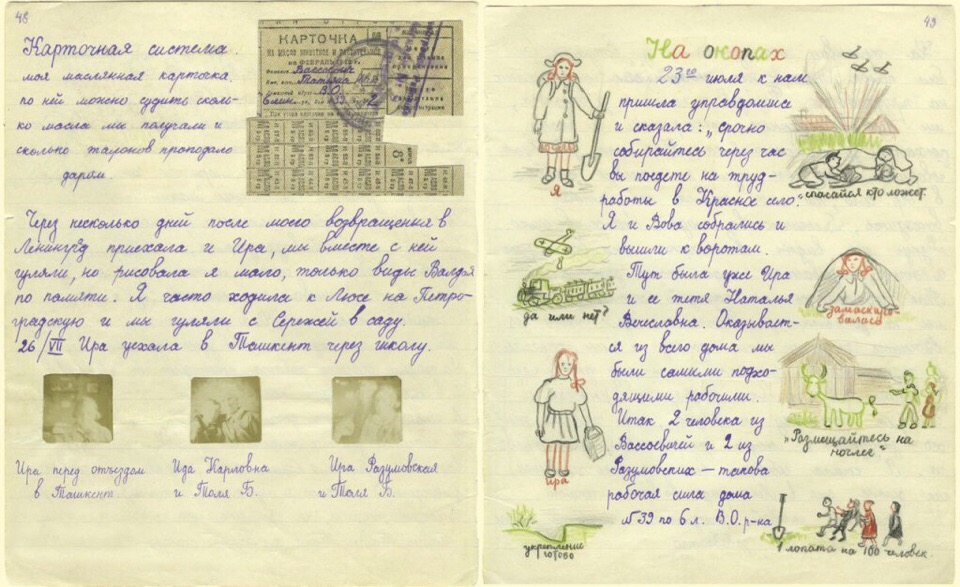 48
Карточная система.
моя маслянная карточка,
по ней можно судить сколь-
ко масла мы получали и
сколько талонов пропадало
даром
КАРТОЧКА
НА МАСЛО ЖИВОТНОЕ И РАСТИТЕЛЬНОЕ
на ФЕВРАЛЬ
Вассоевич
Татьяна
В.О.
6 лин. 39 2
Через несколько дней после моего возвращения в
Ленинград приехала и Ира, мы вместе с ней
гуляли, но рисовала я мало, только виды Валдая
по памяти. Я часто ходила к Люсе на Петро-
градскую и мы гуляли с Сережей в саду.
26/VII Ира уехала в Ташкент через школу.
Ира перед отъездом
в Ташкент
Ида Карловна
и Толя Б.
Ира Разумовская
и Толя Б.
49
На окопах
23го июля к нам
пришла управдомша
и сказала: „срочно
собирайтесь через час
вы поедете на труд-
работы в Красное село."
Я и Вова собрались и
вышли к воротам.
Тут была уже Ира
и ее тетя Наталья
Вечеславна. Оказывает-
ся из всего дома мы
были самыми подхо-
дящими рабочими.
Итак 2 человека из
Вассоевичей и 2 из
Разумовских — такова
рабочая сила дома
№39 по 6 л. В.О. р-на
Я
да или нет?
Ира
укрепление
готово
спасайся кто может
замаскиро-
валась
„Размещайтесь на
ночлег"
1 лопата на 100 человек.